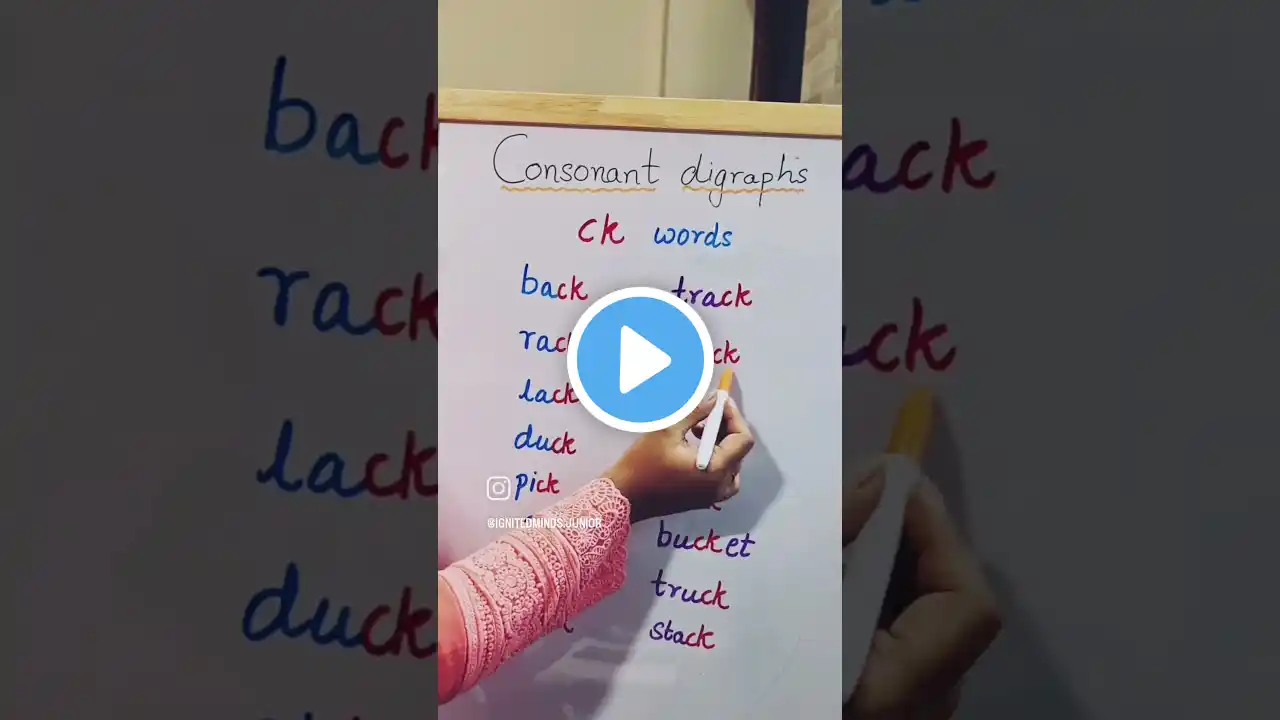 Consonant digraphs
ck words
back
track
lack
duck
pick
@IGNITEDMINDS.JUNIOR
bucket
truck
stack
back
rack
lack
duck